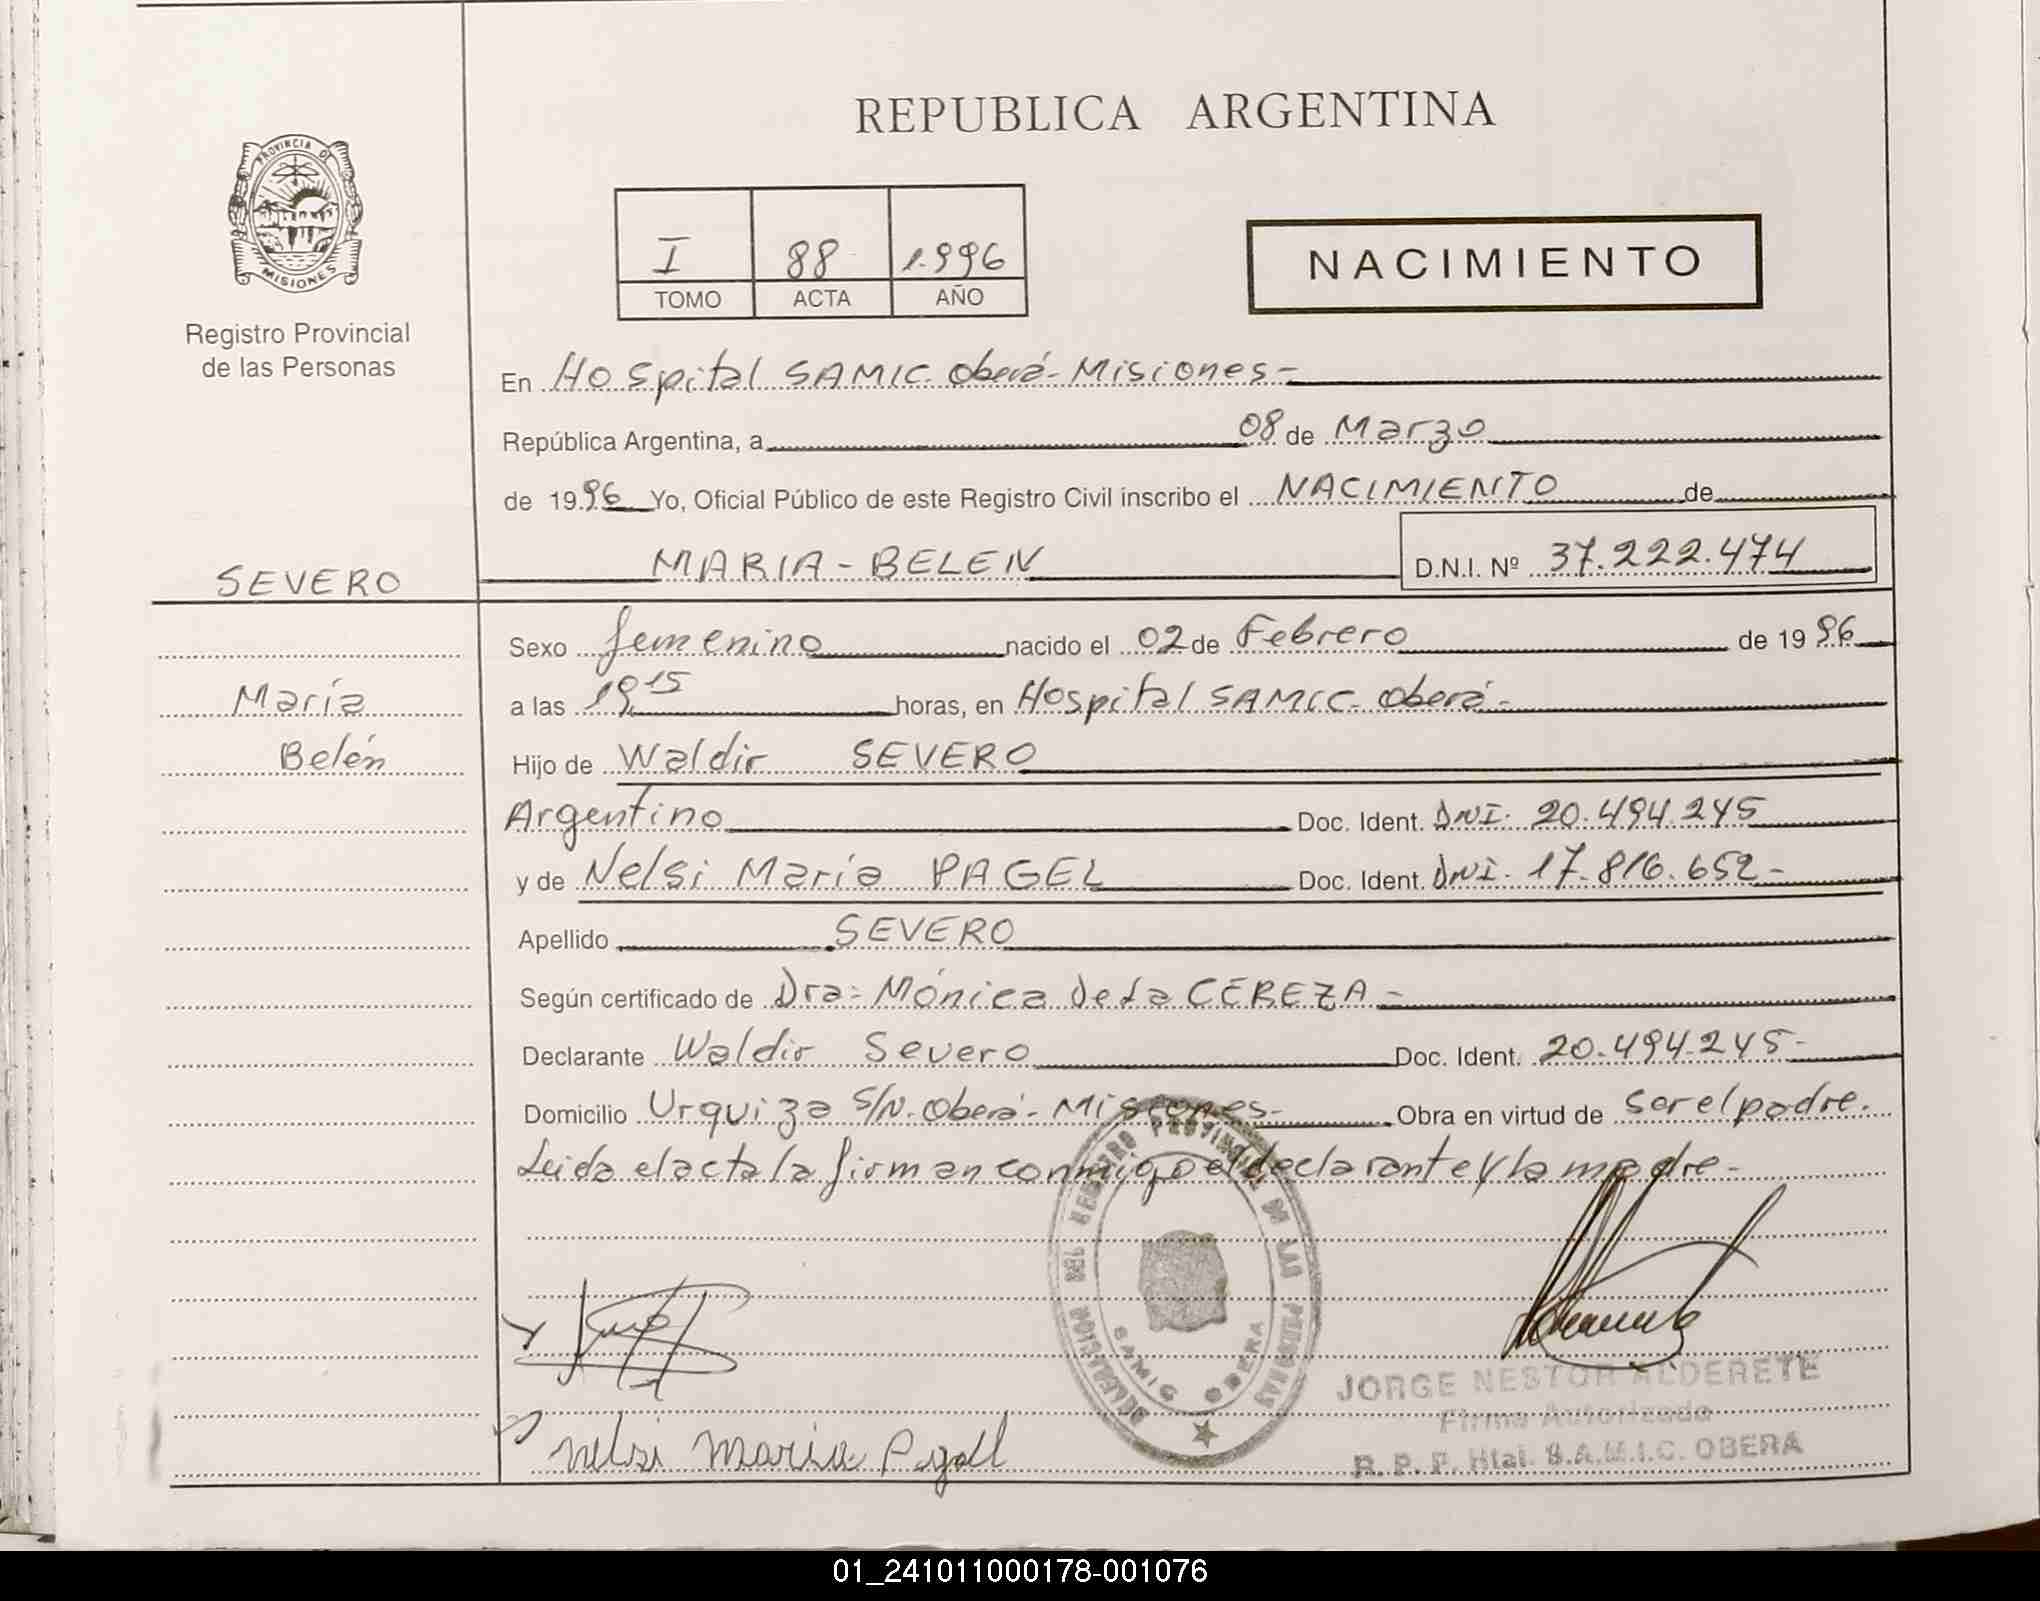 REPUBLICA ARGENTINA
PROVINCIA DE
MISIONES
Registro Provincial
de las Personas
I 88 1.996
TOMO ACTA AÑO
NACIMIENTO
En Hospital SAMIC. Oberá- Misiones-
República Argentina, a 08 de Marzo
de 1996 Yo, Oficial Público de este Registro Civil inscribo el NACIMIENTO de
SEVERO
MARIA - BELEN D.N.I. Nº 37.222.474
María
Belén
Sexo femenino nacido el 02 de Febrero de 1996
a las 19,15 horas, en Hospital SAMIC- Oberá-
Hijo de Waldir SEVERO
Argentino Doc. Ident. DNI. 20.494.245
y de Nelsi María PAGEL Doc. Ident. DNI. 17.816.652-
Apellido SEVERO
Según certificado de Dra: Mónica de la CEREZA-
Declarante Waldir Severo Doc. Ident. 20.494.245-
Domicilio Urquiza S/N. Oberá- Misiones- Obra en virtud de ser el padre.
Leida el acta la firman conmigo el declarante y la madre-
DELEGACION DEL REGISTRO PROVINCIAL DE LAS PERSONAS
SAMIC OBERA
JORGE NESTOR ALDERETE
Firma Autorizada
R. P. P. Htal. S.A.M.I.C. OBERA
Nelsi Maria Pagel
01_241011000178-001076